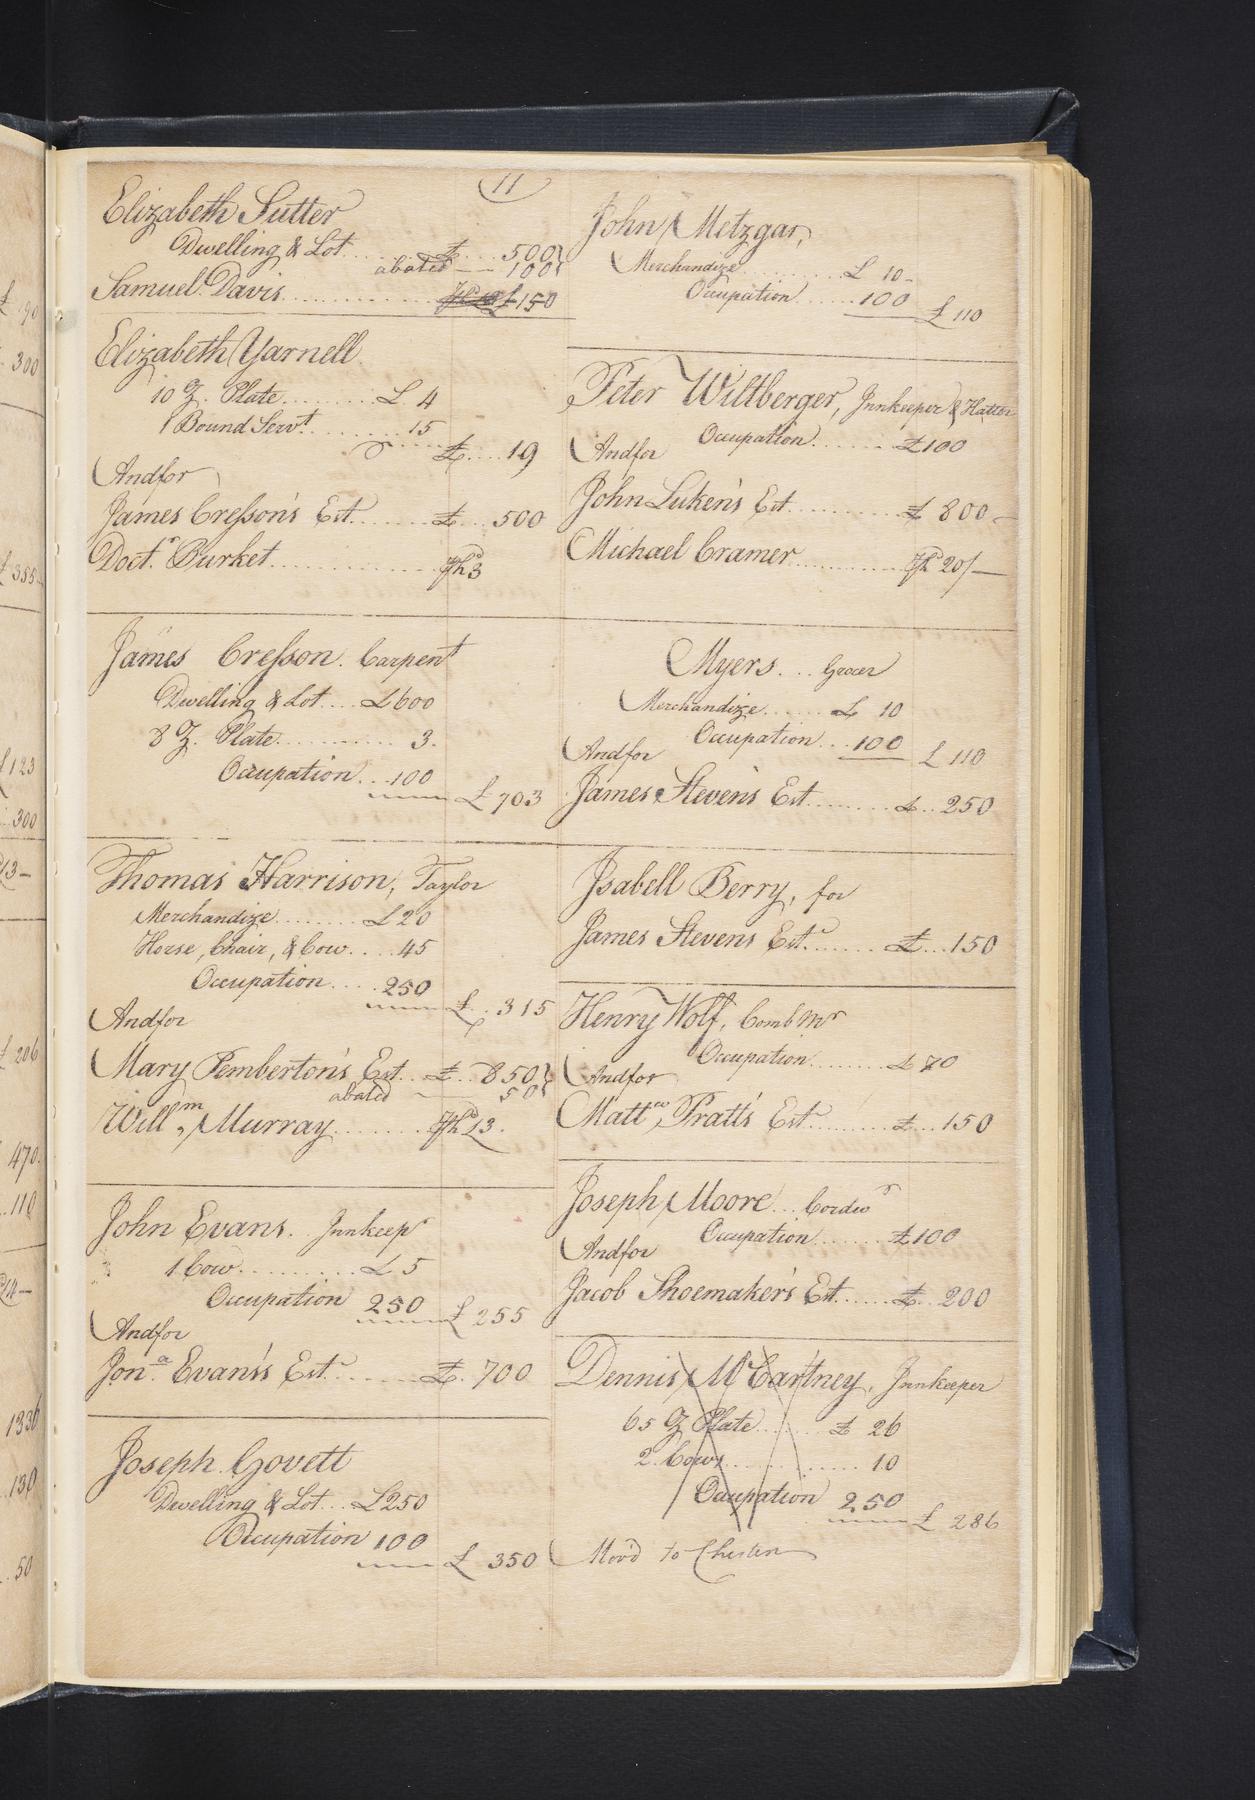 11
Elizabeth Sutter
Dwelling & Lot £ 500
abated 100
Samuel Davis £150
Elizabeth Yarnell
10 Oz. Plate £ 4
1 Bound Servt 15
£ 19
And for
James Cresson's Est. £ 500
Doctr. Burket Phd 3
James Cresson. Carpent
Dwelling & Lot £600
8 Oz. Plate 3.
Occupation 100
£ 703
Thomas Harrison, Taylor
Merchandize £20
Horse, Chair, & Cow 45
Occupation 250
£ 315
And for
Mary Pemberton's Est. £ 850
abated 50
Willm. Murray Phd 13.
John Evans. Innkeepr
1 Cow £ 5
Occupation 250 £ 255
And for
Jona. Evans's Est. £ 700
Joseph Govett
Dwelling & Lot £250
Occupation 100
£ 350
John Metzgar,
Merchandize £ 10
Occupation 100
£ 110
Peter Wiltberger, Innkeeper & Hatter
Occupation £100
And for
John Luken's Est. £ 800
Michael Cramer Phd 20/
Myers Grocer
Merchandize £ 10
Occupation 100 £ 110
And for
James Steven's Est. £ 250
Isabell Berry, for
James Stevens Est. £ 150
Henry Wolf, Comb Mr
Occupation £ 70
And for
Mattw. Pratt's Est. £ 150
Joseph Moore Cordwr
Occupation £100
And for
Jacob Shoemaker's Est. £ 200
Dennis McCartney, Innkeeper
65 Oz Plate £ 26
2 Cows 10
Occupation 250
£ 286
Mov'd to Chester
£ 90
300
£ 355
£ 123
300
13
£ 206
470
110
14
1336
130
50